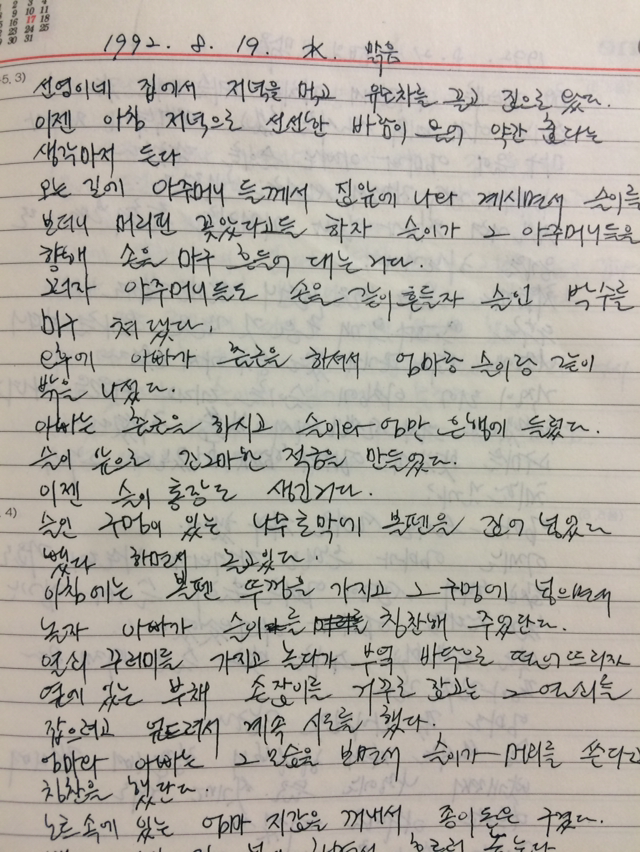 2 3 4
9 10 11
16 17 18
23 24 25
30 31
1992. 8. 19. 水. 맑음
5, 3)
선영이네 집에서 저녁을 먹고 유모차를 끌고 집으로 왔다.
이젠 아침 저녁으로 선선한 바람이 불어 약간 춥다는
생각마저 든다
오는 길에 아주머니 들께서 집앞에 나와 계시면서 슬이를
보더니 머리핀 꽂았다고들 하자 슬이가 그 아주머니들을
향해 손을 마구 흔들어 대는 거다.
그러자 아주머니들도 손을 같이 흔들자 슬인 박수를
마구 쳐 댔다.
오후에 아빠가 출근을 하셔서 엄마랑 슬이랑 같이
밖을 나섰다.
아빠는 출근을 하시고 슬이와 엄만 은행에 들렀다.
슬이 앞으로 긴그마한 적금을 만들었다.
이젠 슬이 통장도 생긴거다.
4)
슬인 구멍이 있는 나무토막에 볼펜을 집어 넣었다
뺐다 하면서 놀고있다.
아침에는 볼펜 뚜껑을 가지고 그 구멍에 넣으면서
놀자 아빠가 슬이를 칭찬해 주었단다.
열쇠 꾸러미를 가지고 놀다가 부엌 바닥으로 떨어뜨리자
옆에 있는 부채 손잡이를 거꾸로 잡고는 그 열쇠를
잡으려고 엎드려서 계속 시도를 했다.
엄마와 아빠는 그 모습을 보면서 슬이가 머리를 쓴다고
칭찬을 했단다.
노트속에 있는 엄마 지갑을 꺼내서 종이돈은 구겼다.